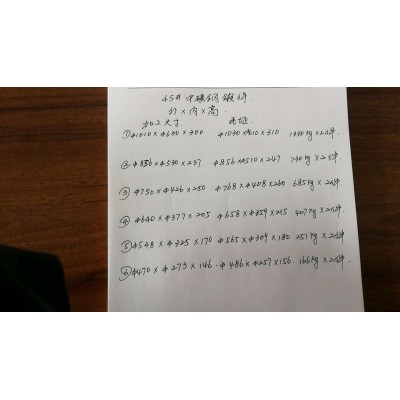 45# 中碳钢锻件
外×内×高
加工尺寸 毛坯
①Φ1010×Φ630×300 Φ1030×Φ610×310 1330kg×2件.
②Φ836×Φ530×237 Φ856×Φ510×247 730kg×2件.
③Φ750×Φ426×250 Φ768×Φ408×260 685kg×2件.
④Φ640×Φ377×205 Φ658×Φ359×215 407kg×2件.
⑤Φ548×Φ325×170 Φ565×Φ309×180 251kg×2件.
⑥Φ470×Φ273×146 Φ486×Φ257×156 166kg×2件.